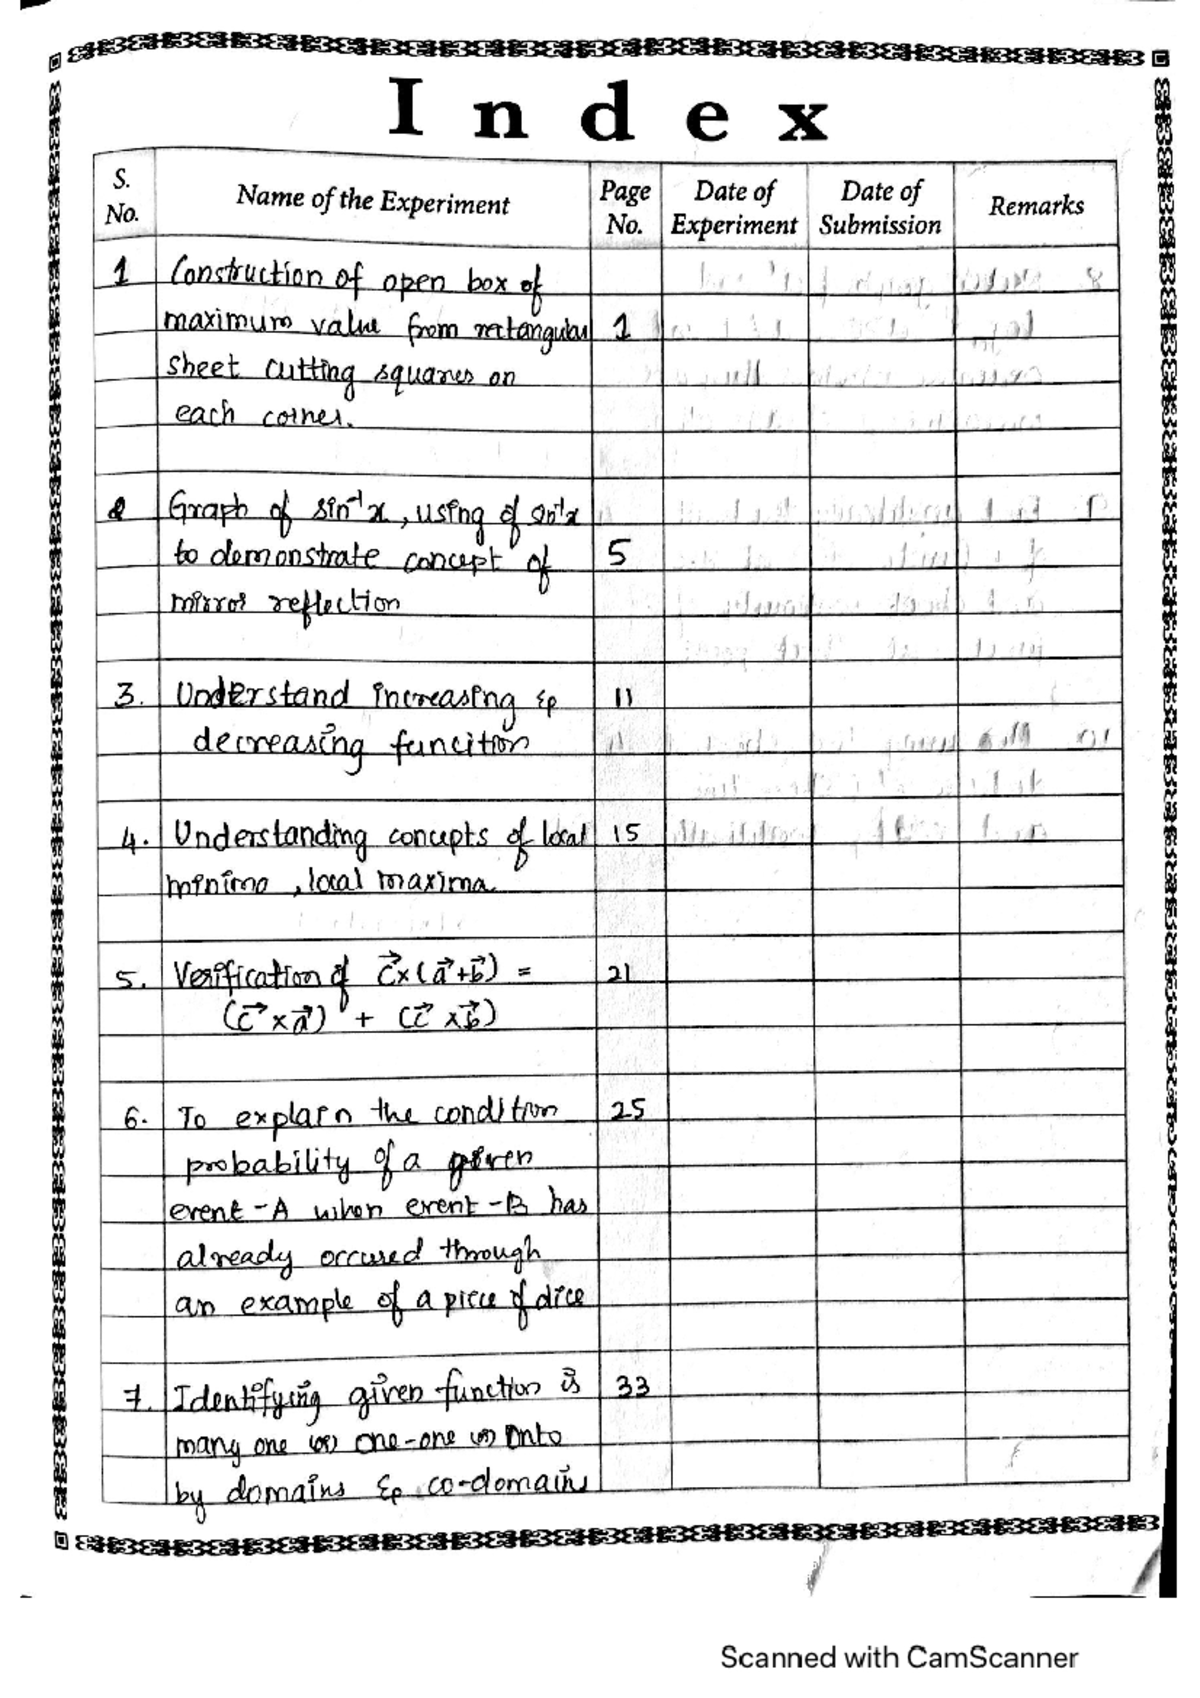 Index
S. No.
Name of the Experiment
Page No.
Date of Experiment
Date of Submission
Remarks
1 Construction of open box of
maximum value from rectangular 1
sheet cutting squares on
each corner.
2 Graph of sin⁻¹x, using of sin⁻¹x
to demonstrate concept of 5
mirror reflection
3. Understand increasing & 11
decreasing funcition
4. Understanding concepts of local 15
minima, local maxima.
5. Verification of c⃗×(a⃗+b⃗) = 21
(c⃗×a⃗) + (c⃗×b⃗)
6. To explain the condition 25
probability of a given
event-A when event-B has
already occured through
an example of a piece of dice
7. Identifying given function is 33
many one (or) one-one (or) Onto
by domains & co-domains
Scanned with CamScanner